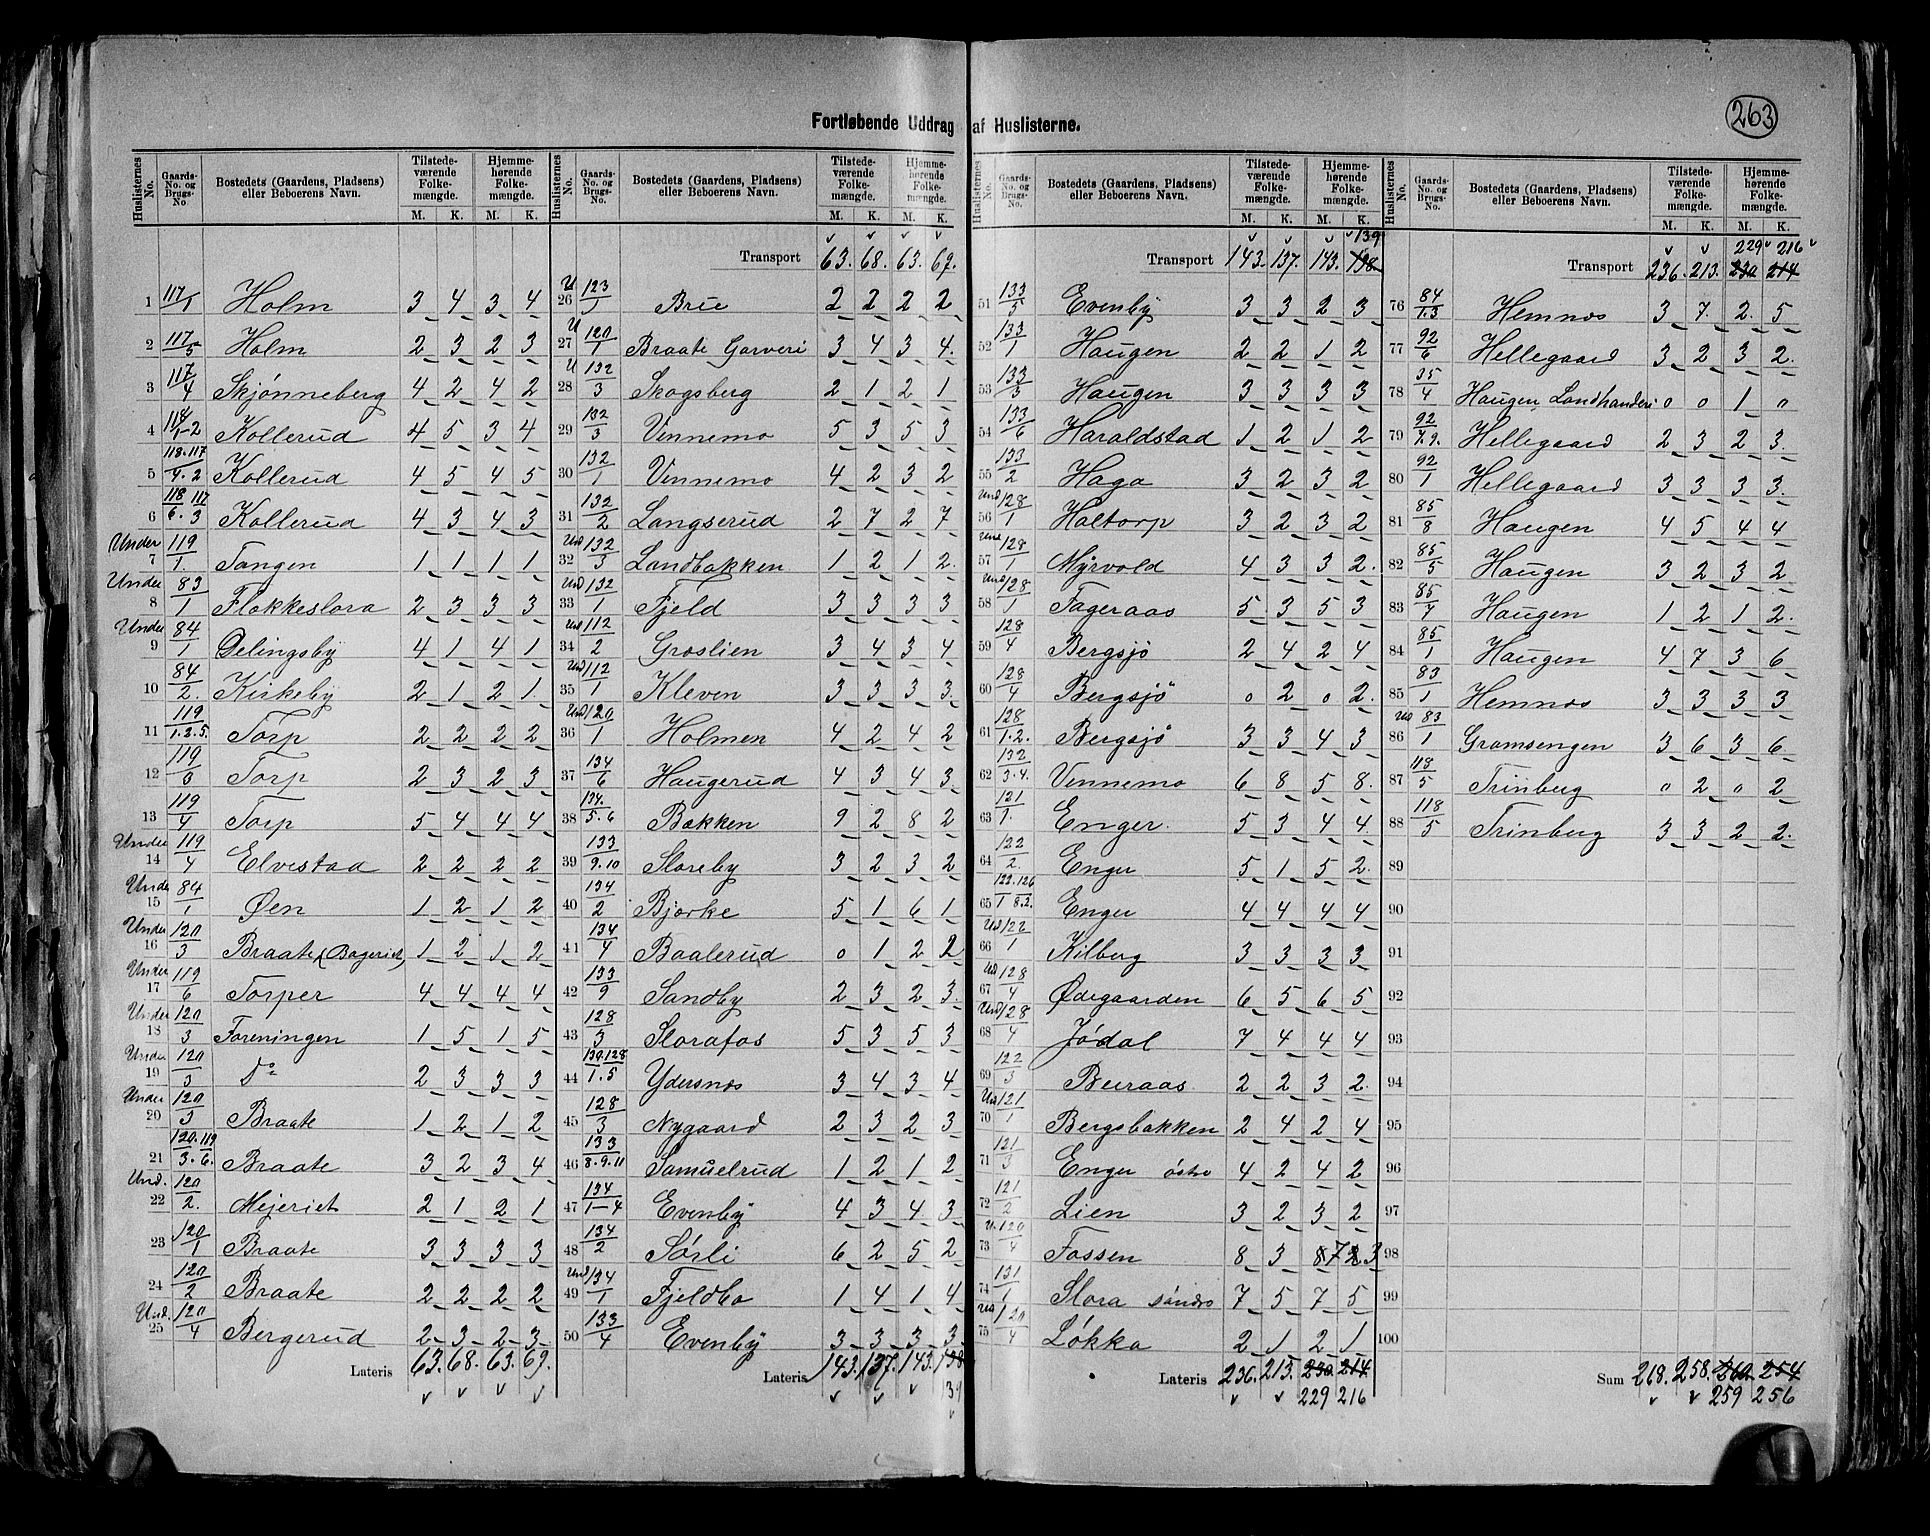 263
Fortløbende Uddrag af Huslisterne.
Huslisternes No. Gaards-No. og Brugs-No Bostedets (Gaardens, Pladsens) eller Beboerens Navn. Tilstedeværende Folkemængde. M. K. Hjemmehørende Folkemængde. M. K.
1 117/1 Holm 3 4 3 4
2 117/5 Holm 2 3 2 3
3 117/4 Skjønneberg 4 2 4 2
4 118/1-2 Kollerud 4 5 3 4
5 118.117/4.2 Kollerud 4 5 4 5
6 118 117/6.3 Kollerud 4 3 4 3
7 Under 119/1. Tangen 1 1 1 1
8 Under 83/1 Flakkeslora 2 3 3 3
9 Under 84/1 Delingsby 4 1 4 1
10 84/2. Kirkeby 2 1 2 1.
11 119/1.2.5. Torp 2 2 2 2
12 119/3 Torp 2 3 2 3
13 119/4 Torp 5 4 4 4
14 Under 119/4 Elvestad 2 2 2 2
15 Under 84/1 Øen 1 2 1 2
16 Under 120/3 Braate (Bageriet) 1 2 1 2
17 Under 119/6 Torper 4 4 4 4
18 Under 120/3 Foreningen 1 5 1 5
19 Under 120/3 Do 2 3 3 3
20 Under 120/3 Braate 1 2 1 2
21 120.119/3.6. Braate 3 2 3 4
22 Und. 120/2. Mejeriet 2 1 2 1
23 120/1 Braate 3 3 3 3
24 120/2 Braate 2 2 2 2
25 Und. 120/4 Bergerud 2 3 2 3
Lateris 63. 68. 63. 69.
Huslisternes No. Gaards-No. og Brugs-No. Bostedets (Gaardens, Pladsens) eller Beboerens Navn. Tilstedeværende Folkemængde. M. K. Hjemmehørende Folkemængde. M. K.
Transport 63. 68. 63. 69.
26 U 123/1 Brue 2 2 2 2
27 U 120/1 Braate Garveri 3 4 3 4.
28 U 132/3 Skogsberg 2 1 2 1
29 132/3 Vennemo 5 3 5 3
30 132/1 Vennemo 4 2 3 2
31 132/2 Langserud 2 7 2 7
32 Und 132/3 Landbakken 1 2 1 2.
33 Und 132/1 Fjeld 3 3 3 3
34 Und 112/2 Groslien 3 4 3 4
35 Und 112/1 Kleven 3 3 3 3.
36 Und 120/1 Holmen 4 2 4 2
37 134/6 Haugerud 4 3 4 3
38 134./5.6 Bakken 9 2 8 2
39 133/9.10 Storeby 3 2 3 2
40 134/2 Bjørke 5 1 6 1
41 134/4 Baalerud 0 1 2 2
42 133/9 Sandby 2 3 2 3.
43 128/3 Slorafos 5 3 5 3
44 130.128/1.5 Ydersnes 3 4 3 4
45 128/3 Nygaard 2 3 2 3
46 133/8.9.11 Samuelrud 1 2 1 2
47 134/1-4 Evenby 4 3 4 3
48 134/2 Sørli 6 2 5 2
49 Und 134/1 Fjeldbo 1 4 1 4
50 133/4 Evenby 3 3 3 3.
Lateris 143. 137. 143. 138
39
Huslisternes No. Gaards-No. og Brugs-No. Bostedets (Gaardens, Pladsens) eller Beboerens Navn. Tilstedeværende Folkemængde. M. K. Hjemmehørende Folkemængde. M. K.
139
Transport 143. 137. 143. 138
51 133/5 Evenby 3 3 2 3
52 133/1 Haugen 2 2 1 2
53 133/3 Haugen 3 3 3 3
54 133/6 Haraldstad 1 2 1 2
55 133/2 Haga 3 2 3 2
56 Und 128/1 Haltorp 3 2 3 2
57 Und 128/1 Myrvold 4 3 3 2.
58 Und 128/1 Fageraas 5 3 5 3
59 128/4 Bergsjø 2 4 2 4
60 128/4 Bergsjö 0 2 0 2.
61 128/1.2. Bergsjö 3 3 4 3
62 132/3.4. Vennemo 6 8 5 8.
63 121/1. Enger. 5 3 4 4.
64 122/2. Enger 5 1 5 2.
65 122.126/1 8.2. Enger 4 4 4 4
66 Und 122/1 Kilberg 3 3 3 3
67 Und 128/4 Ødegaarden 6 5 6 5
68 Und 128/4 Jødal 7 4 4 4
69 122/3 Buraas 2 2 3 2.
70 Und 121/1 Bergsbakken 2 4 2 4
71 121/3 Enger östre 4 2 4 2
72 121/2 Lien 3 2 3 2
73 U. 120/4 Fossen 8 3 8 7 2 3
74 131/1 Slora söndre 7 5 7 5
75 Und 120/4 Løkka 2 1 2 1
Lateris 236. 213. 230 214
229 216
Huslisternes No. Gaards-No. og Brugs-No. Bostedets (Gaardens, Pladsens) eller Beboerens Navn. Tilstedeværende Folkemængde. M. K. Hjemmehørende Folkemængde. M. K.
229 216
Transport 236. 213. 230 214
76 84/1.3 Hemnes 3 7. 2. 5
77 92/6 Hellegaard 3 2 3 2.
78 35/4 Haugen, Landhanderi 0 0 1 0
79 92/7.9. Hellegaard 2 3 2 3.
80 92/1 Hellegaard 3 3 3 3.
81 85/8 Haugen 4 5 4 4
82 85/5 Haugen 3 2 3 2
83 85/4 Haugen 1 2 1 2.
84 85/1 Haugen 4 7 3 6
85 83/1 Hemnes 3 3 3 3
86 Ud 83/1 Gramsengen 3 6 3 6
87 118/5 Trinberg 0 2 0 2
88 118/5 Trinberg 3 3 2 2.
89
90
91
92
93
94
95
96
97
98
99
100
Sum 268. 258. 260 254
259 256